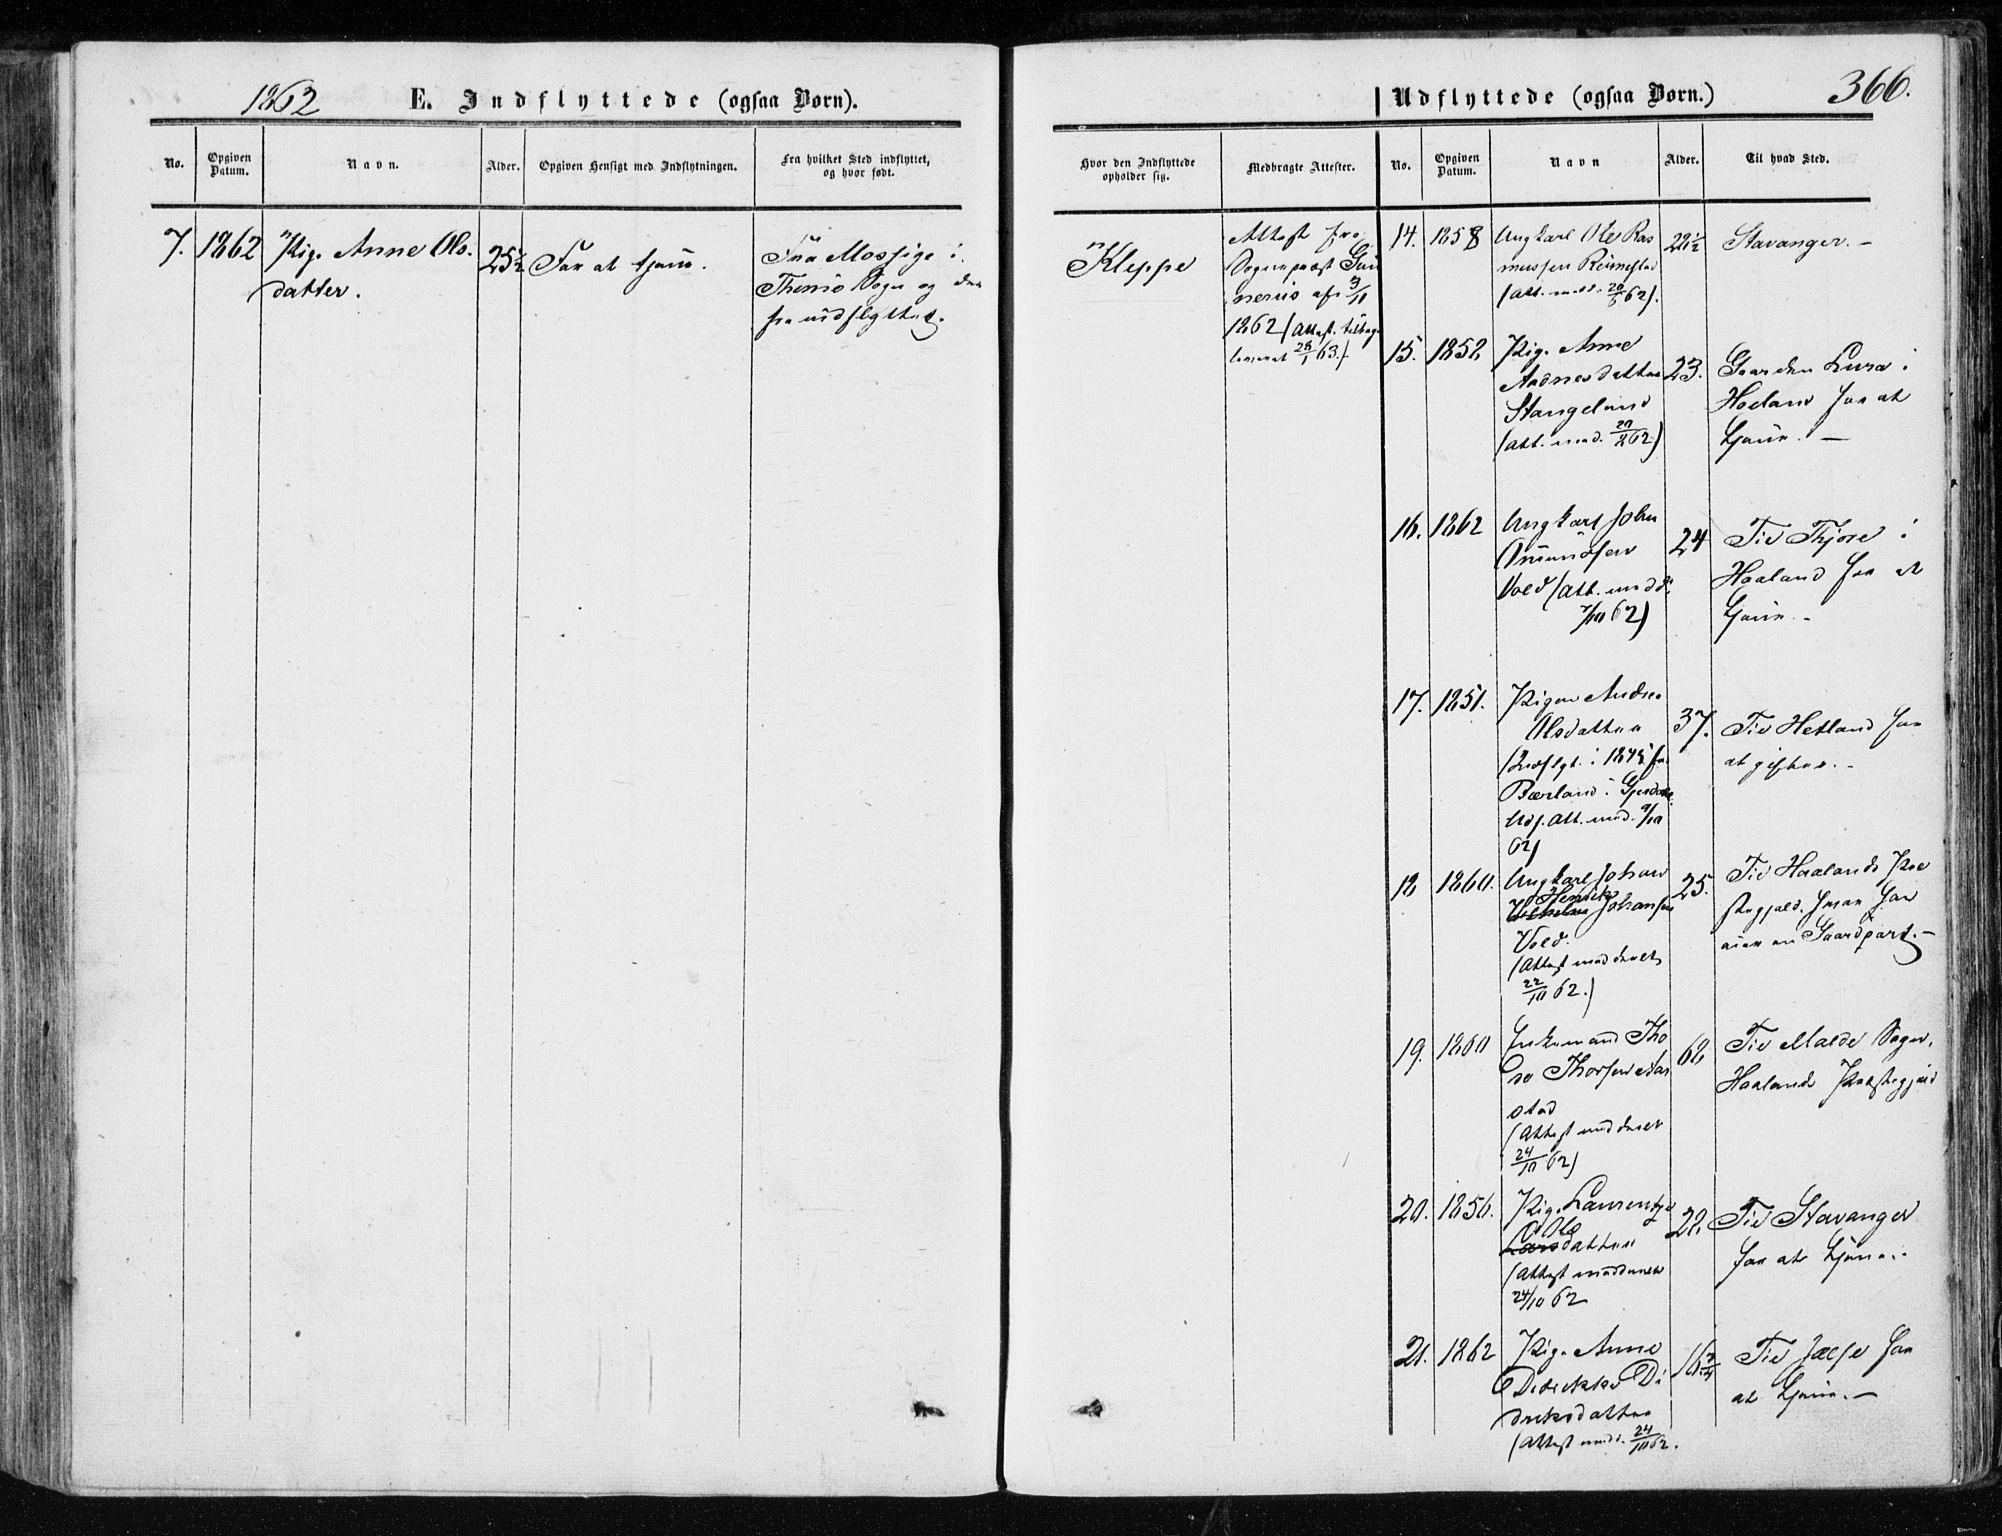 1862
E. Indflyttede (ogsaa Børn).
No.
Opgiven Datum.
Navn.
Alder.
Opgiven Hensigt med Indflytningen.
Fra hvilket Sted indflyttet, og hvor født.
7.
1862
Pig. Anne Ols-
datter.
25½
For at tjene.
Fra Mossige i
Thime Sogn og der
fra udflyttet.
366.
Udflyttede (ogsaa Børn.)
Hvor den Indflyttede opholder sig.
Medbragte Attester.
No.
Opgiven Datum.
Navn
Alder.
Til hvad Sted.
Kleppe
Attest fra
Sognepræst Gun
nerius af 3/11
1862 (Attest. tilbage
leveret 28/1 63.)
14.
1858
Ungkarl Ole Ras
mussen Reimestad
(Att. medd. 20/5 62).
22½
Stavanger.-
15.
1852
Pig. Anne
Aadnesdatter
Stangeland
(att. med. 20/8 62)
23.
Gaarden Lura i
Høiland for at
tjene.-
16.
1862
Ungkarl John
Amundsen
Vold (att. medd.
7/10 62)
24
Til Thjore i
Haaland for at
tjene.-
17.
1851.
Pigen Andrea
Olsdatter
(Indflyt. i 1845 fra
Bærland i Gjesdal
Udf. att. med. 9/10
62)
37.
Til Hetland for
at giftes.-
18
1860.
Ungkarl Johan
Henrik
Johansen
Vold.
(Attest meddeelt
22/10 62.)
25.
Til Haalands Præ
stegjeld, hvor han
eier en Gaardpart.-
19.
1860
Enkemand Tho
re Thorsen
stad
(Attest meddeelt
24/10 62)
62
Til Malde Sogn,
Haalands Præstegjeld
20.
1856.
Pig. Laurentze
Ole
Larsdatter
(Attest meddeelt
24/10 62
22
Til Stavanger
for at tjene.-
21.
1862
Pig. Anne
Didrikke Di
driksdatter
(Attest medd. 24/10 62.
16¾
Til Jælse for
at tjene.-